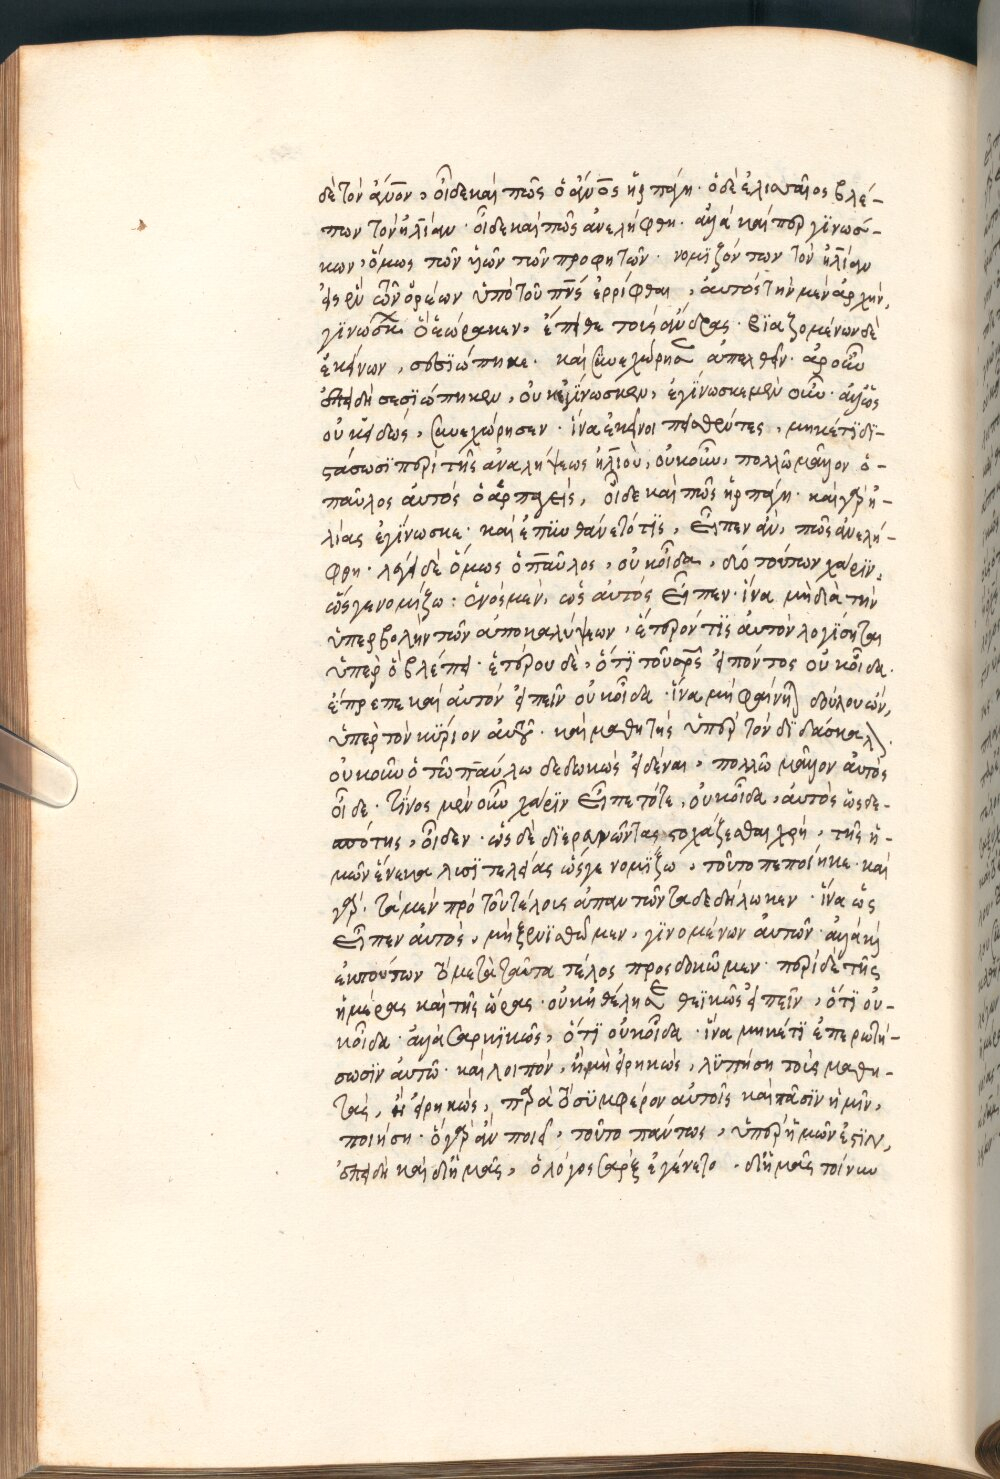 δὲ τὸν ἄνον, οἶδε καὶ πῶς ὁ ἄνος ἡρπάγη· ὁ δὲ ἐλισσαῖος βλέ-
πων τὸν ἠλίαν· οἶδε καὶ πῶς ἀνελήφθη· ἀλλὰ καίπερ γϊνώσ-
κων, ὅμως τῶν υἱῶν τῶν προφητῶν· νομϊζόντων τὸν ἠλίαν
ἐφ' ἓν τῶν ὀρέων ὑπὸ τοῦ πνς ἐρρίφθαι, αὐτὸς τὴν μὲν ἀρχὴν,
γϊνώσκων ὃ ἑώρακεν, ἔπειθε τοὺς ἄνδρας· βϊαζομένων δὲ
ἐκείνων, σεσϊώπηκε· καὶ συνεχώρησεν ἀπελθεῖν· ἆρ οὖν
ἐπειδὴ σεσϊώπηκεν, οὐκ ἐγϊνωσκεν, ἐγϊνωσκε μὲν οὖν· ἀλλ' ὡς
οὐκ εἰδὼς, συνεχώρησεν· ἵνα ἐκεῖνοι πεισθέντες, μηκέτϊ δϊ-
στάσωσϊ περὶ τῆς ἀναλήψεως ἠλιοὺ, οὐκοῦν, πολλῶ μᾶλλον ὁ-
παῦλος αὐτὸς ὁ ἁρπαγεὶς, οἶδε καὶ πῶς ἡρπάγη· καὶ γὰρ ἠ-
λίας ἐγϊνωσκε· καὶ ἐπυνθάνετό τϊς, εἶπεν ἂν, πῶς ἀνελή-
φθη· λέγει δὲ ὅμως ὁ παῦλος, οὐκ οἶδα, διὸ τούτων χάρϊν,
ὥς γε νομίζω: ἑνὸς μὲν, ὡς αὐτὸς εἶπεν· ἵνα μὴ διὰ τὴν
ὑπερβολὴν τῶν ἀποκαλύψεων, ἕτερόν τϊς αὐτὸν λογίσηται
ὑπὲρ ὃ βλέπει· ἑτέρου δὲ, ὅτϊ τοῦ σρς εἰπόντος οὐκ οἶδα·
ἔπρεπε καὶ αὐτὸν εἰπεῖν οὐκ οἶδα· ἵνα μὴ φαίνηται δοῦλος ὢν,
ὑπὲρ τὸν κύριον αὐτοῦ· καὶ μαθητὴς ὑπὲρ τὸν δϊδάσκαλον·
οὐκοῦν ὁ τῶ παύλω δεδωκὼς εἰδέναι, πολλῶ μᾶλλον αὐτὸς
οἶδε· τίνος μὲν οὖν χάρϊν εἶπε τότε, οὐκ οἶδα, αὐτὸς ὡς δε-
σπότης, οἶδεν· ὡς δὲ δϊερευνῶντας στοχάζεσθαι χρὴ, τῆς ἡ-
μῶν ἕνεκα λυσϊτελείας ὥς γε νομϊζω, τοῦτο πεποίηκε· καὶ
γὰρ· τὰ μὲν πρὸ τοῦ τέλους ἅπαντα δεδήλωκεν· ἵνα ὡς
εἶπεν αὐτὸς, μὴ ξενϊσθῶμεν, γϊνομένων αὐτῶν· ἀλλὰ καὶ
ἐκ τούτων τὸ μετὰ ταῦτα τέλος προσδοκῶμεν· περὶ δὲ τῆς
ἡμέρας καὶ τῆς ὥρας· οὐκ ἠθέλησε θεϊκῶς εἰπεῖν, ὅτϊ οὐ-
κ οἶδα· ἀλλὰ σαρκϊκῶς, ὅτϊ οὐκ οἶδα· ἵνα μηκέτϊ ἐπερωτή-
σωσϊν αὐτῶ· καὶ λοιπὸν, ἢ μὴ εἰρηκὼς, λϋπήση τοὺς μαθη-
τὰς, ἢ εἰρηκὼς, παρὰ τὸ σϋμφέρον αὐτοῖς καὶ πᾶσϊν ἡμῖν,
ποιήση· ὃ γὰρ ἂν ποιεῖ, τοῦτο πάντως, ὑπὲρ ἡμῶν ἐστϊν,
ἐπειδὴ καὶ δι ἡμᾶς, ὁ λόγος σὰρξ ἐγένετο, δι ἡμᾶς τοίνυν